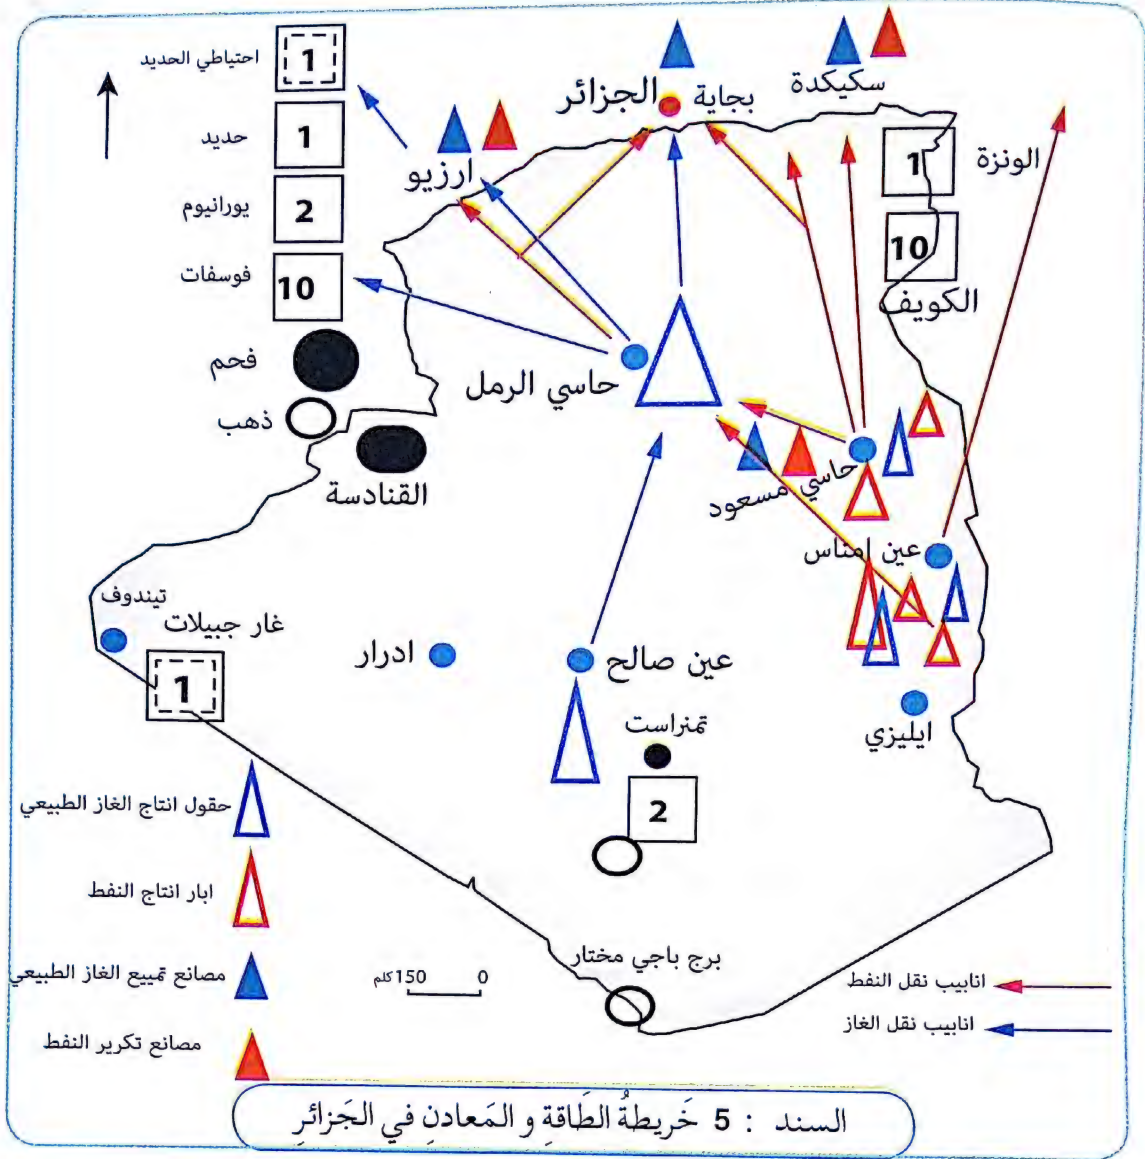 احتياطي الحديد
1
حديد
1
يورانيوم
2
فوسفات
10
فحم
ذهب
الجزائر
بجاية
سكيكدة
ارزيو
1
الونزة
10
الكويف
حاسي الرمل
حاسي مسعود
القنادسة
عين امناس
تيندوف
غار جبيلات
1
ادرار
عين صالح
ايليزي
تمنراست
2
برج باجي مختار
حقول انتاج الغاز الطبيعي
ابار انتاج النفط
مصانع تمييع الغاز الطبيعي
مصانع تكرير النفط
0 150كلم
انابيب نقل النفط
انابيب نقل الغاز
السند : 5 خَريطةُ الطَاقةِ و المَعادنِ في الجَزائرِ